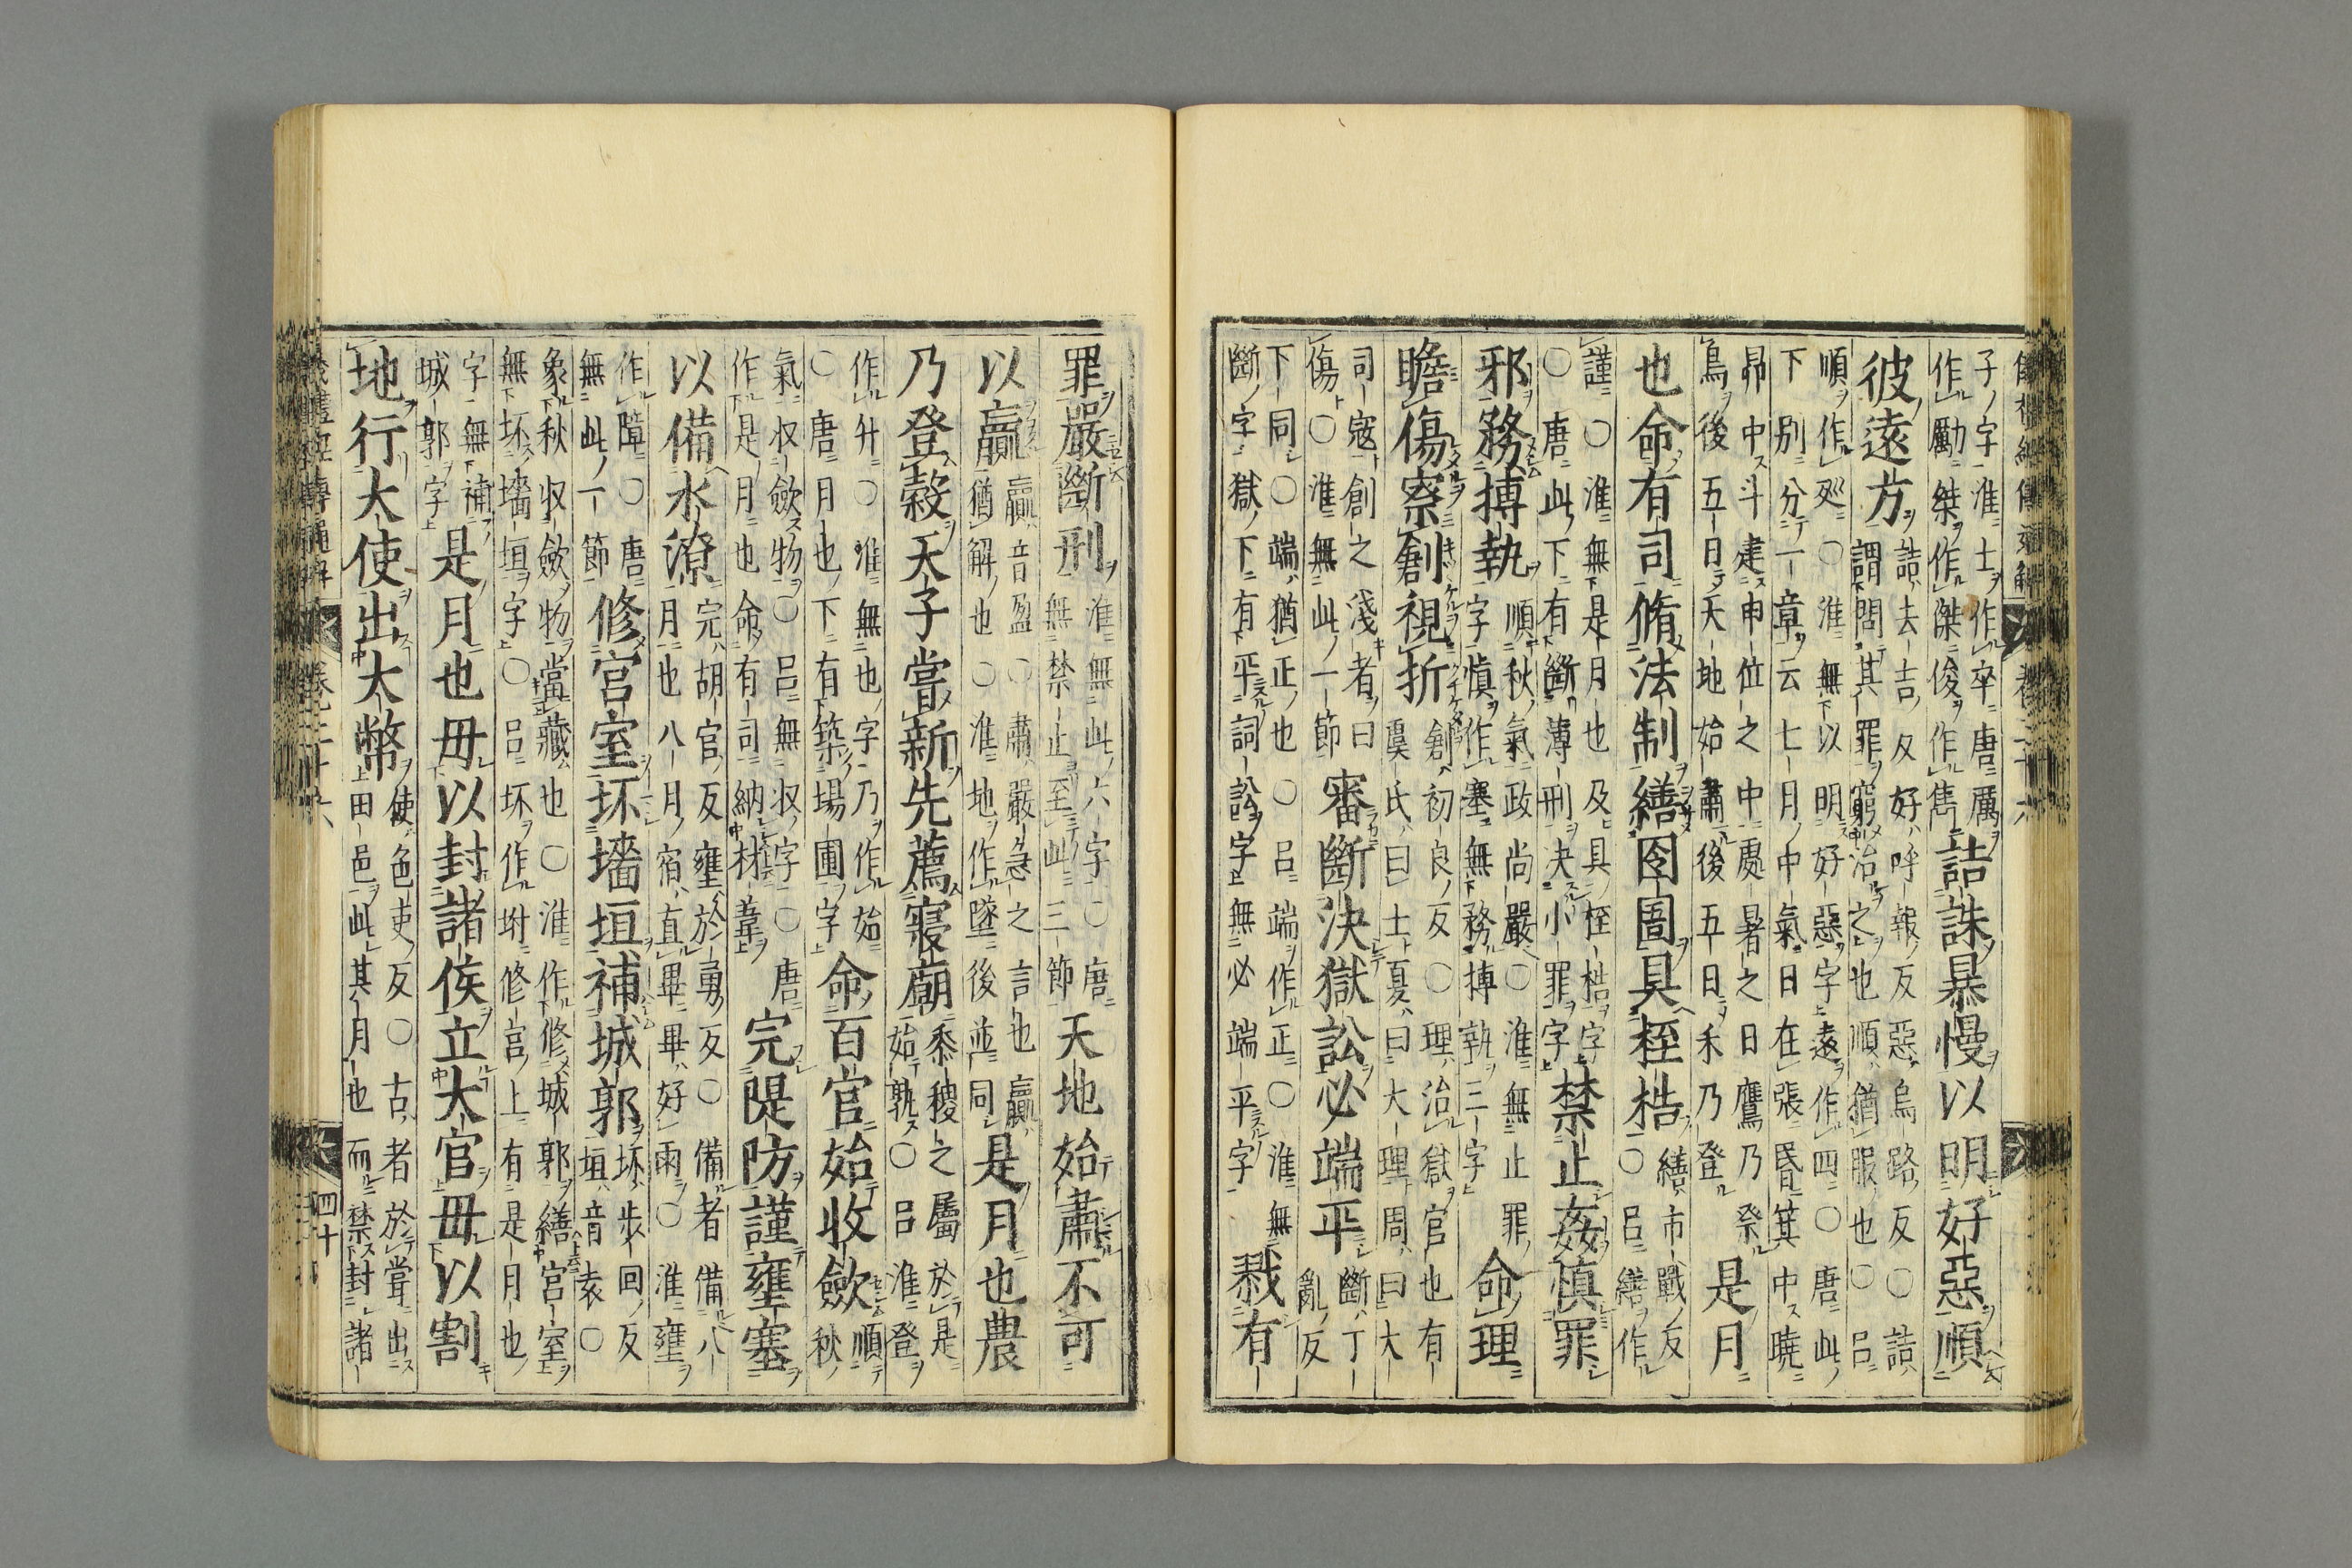 儀禮經傳通解
卷二十六
子字淮士作卒唐厲
作勵桀作傑俊作雋
詰誅暴慢以明好惡順
彼遠方
詰去吉反好呼報反惡烏路反○詰
謂問其罪窮治之也順猶服也○呂
順作巡○淮無以明好惡字遠作四○唐此
下別分一章云七月中氣日在張昏箕中曉
昴中斗建申位之中處暑之日鷹乃祭
鳥後五日天地始肅後五日禾乃登
是月
也命有司脩法制繕囹圄具桎梏
繕市戰反
○呂繕作
謹○淮無是月也及具桎梏字
○唐此下有斷薄刑決小罪字
禁止姦慎罪
邪務搏執
順秋氣政尚嚴○淮無止罪
字慎作塞無務搏執三字
命理
瞻傷察創視折
創初良反○理治獄官也有
虞氏曰士夏曰大理周曰大
司寇創之淺者曰
傷○淮無此一節
審斷決獄訟必端平
斷丁
亂反
下同○端猶正也○呂端作正○淮無
斷字獄下有平詞訟字無必端平字
戮有
罪嚴斷刑
淮無此六字○唐
無禁止至此三節
天地始肅不可
以贏
贏音盈○肅嚴急之言也贏
猶解也○淮地作墜後並同
是月也農
乃登穀天子嘗新先薦寢廟
黍稷之屬於是
始孰○呂淮登
作升○淮無也字乃作始
○唐月也下有築場圃字
命百官始收斂
順
秋
氣収斂物○呂無収字○唐
作是月也命有司納材葦
完隄防謹壅塞
以備水潦
完胡官反壅於勇反○備者備八
月也八月宿直畢畢好雨○淮壅
作障○唐
無此一節
修宮室坏墻垣補城郭
坏步回反
垣音袁○
象秋収斂物當藏也○淮作修城郭繕宮室
無坏墻垣字○呂坏作坿修宮上有是月也
字無補
城郭字
是月也毋以封諸侯立大官毋以割
地行大使出大幣
使色吏反○古者於嘗出
上田邑此其月也而禁封諸
四十